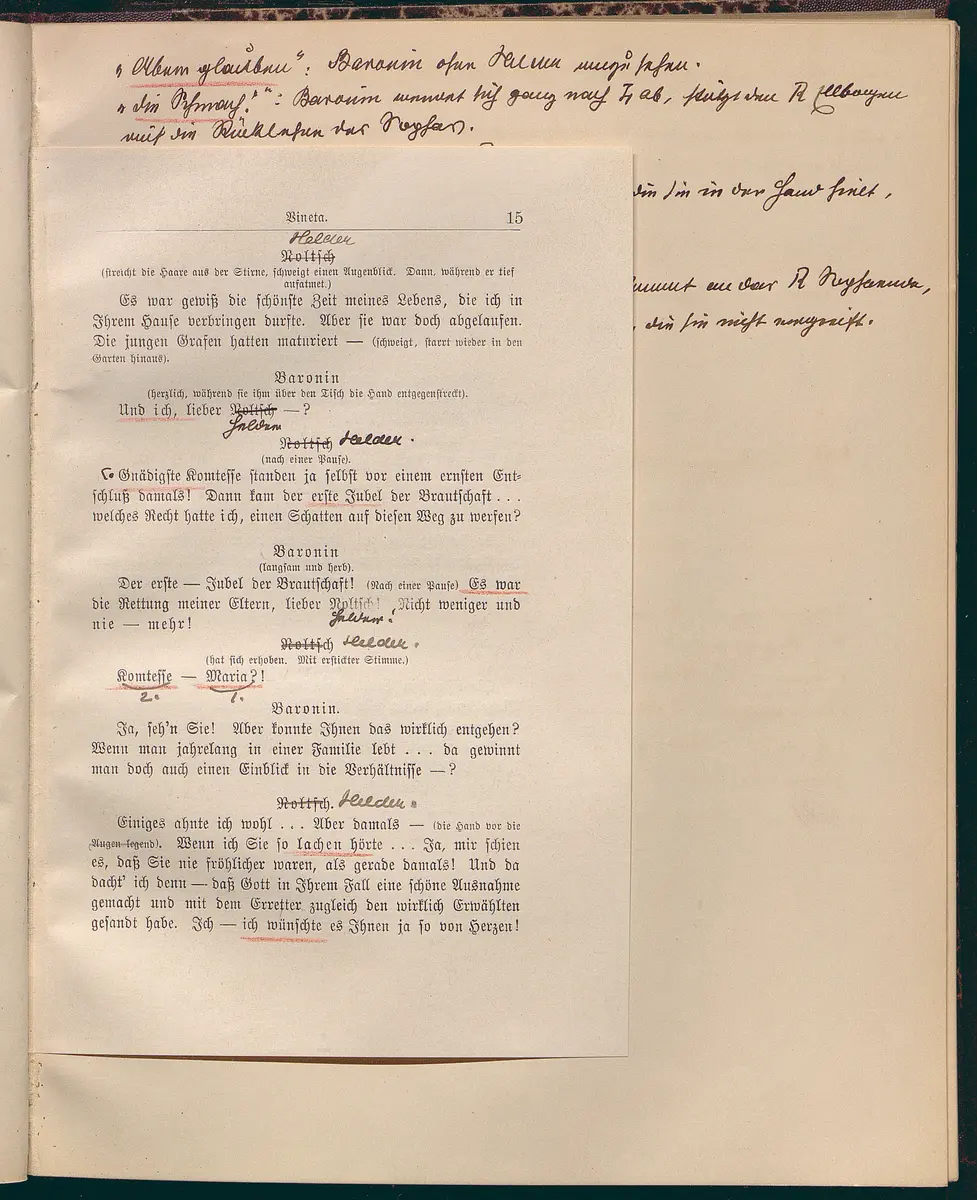 „Abern glauben“: Baronin ohne Helder anzusehen.
„die Schmach!“: Baronin wendet sich ganz nach L ab, stützt den R Ellbogen
auf die Rücklehne des Sophas.
die sie in der Hand hielt,
kommt an das R Sophaende,
, die sie nicht ergreift.
Vineta. 15
Helder
Noltsch
(streicht die Haare aus der Stirne, schweigt einen Augenblick. Dann, während er tief
aufatmet.)
Es war gewiß die schönste Zeit meines Lebens, die ich in
Ihrem Hause verbringen durfte. Aber sie war doch abgelaufen.
Die jungen Grafen hatten maturiert — (schweigt, starrt wieder in den
Garten hinaus).
Baronin
(herzlich, während sie ihm über den Tisch die Hand entgegenstreckt).
Und ich, lieber Noltsch —?
Helder
Noltsch Helder.
(nach einer Pause).
Gnädigste Komtesse standen ja selbst vor einem ernsten Ent-
schluß damals! Dann kam der erste Jubel der Brautschaft . . .
welches Recht hatte ich, einen Schatten auf diesen Weg zu werfen?
Baronin
(langsam und herb).
Der erste — Jubel der Brautschaft! (Nach einer Pause) Es war
die Rettung meiner Eltern, lieber Noltsch! Nicht weniger und
Helder!
nie — mehr!
Noltsch Helder.
(hat sich erhoben. Mit erstickter Stimme.)
Komtesse — Maria?!
2. 1.
Baronin.
Ja, seh'n Sie! Aber konnte Ihnen das wirklich entgehen?
Wenn man jahrelang in einer Familie lebt . . . da gewinnt
man doch auch einen Einblick in die Verhältnisse —?
Noltsch. Helder.
Einiges ahnte ich wohl . . . Aber damals — (die Hand vor die
Augen legend). Wenn ich Sie so lachen hörte . . . Ja, mir schien
es, daß Sie nie fröhlicher waren, als gerade damals! Und da
dacht' ich denn — daß Gott in Ihrem Fall eine schöne Ausnahme
gemacht und mit dem Erretter zugleich den wirklich Erwählten
gesandt habe. Ich — ich wünschte es Ihnen ja so von Herzen!